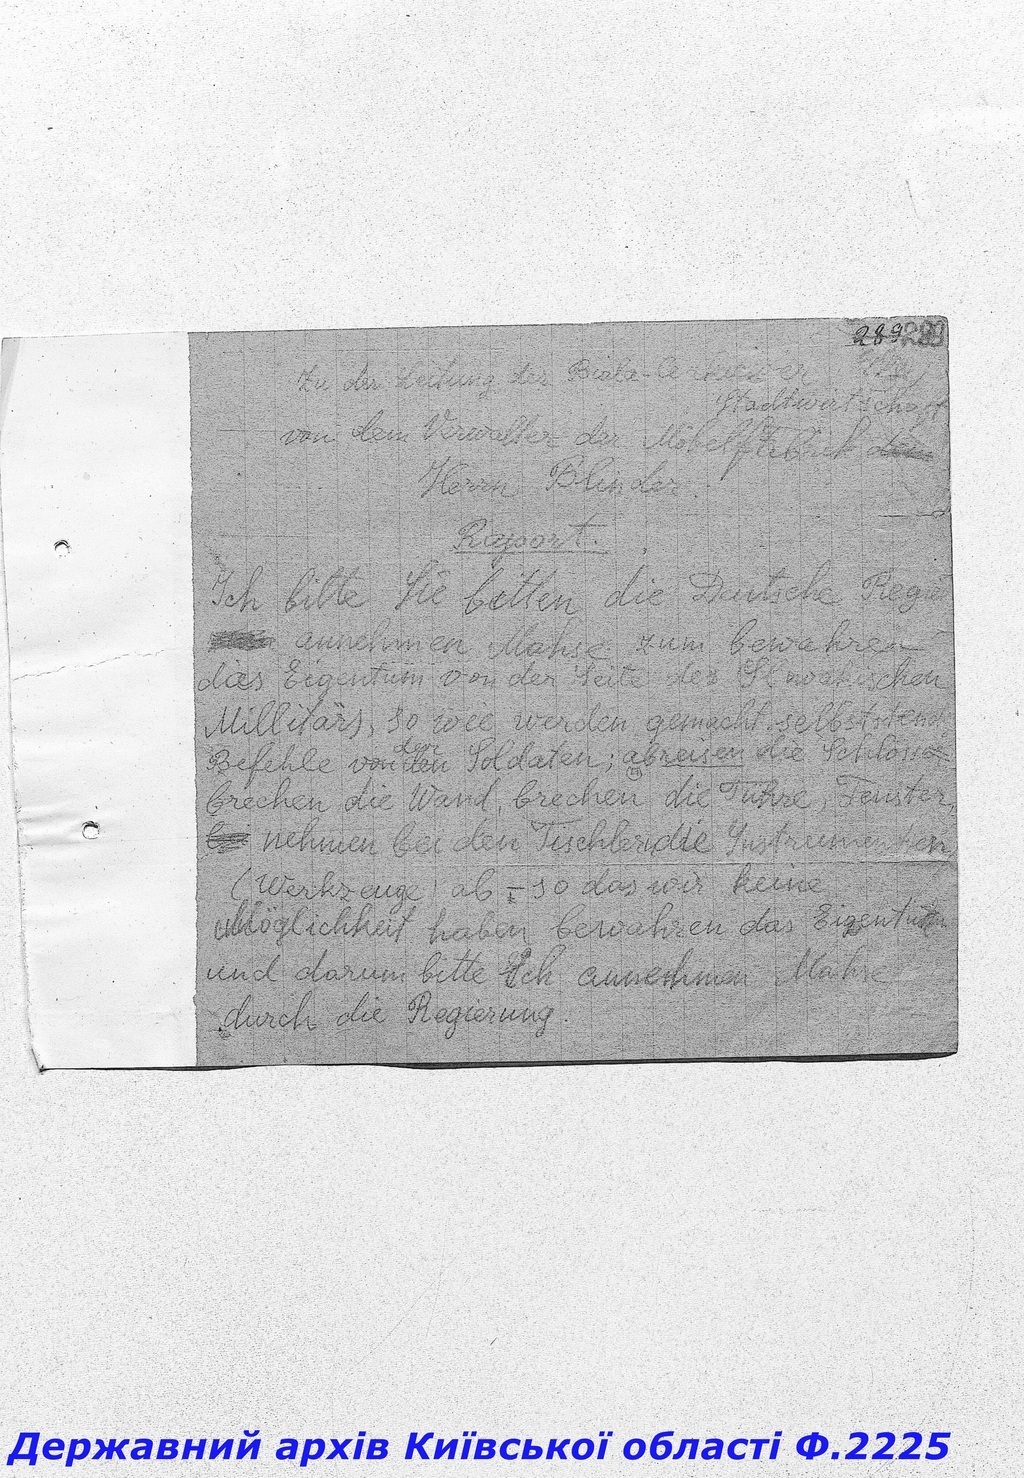 289
Zu der Leitung der Biala-Cerkiewer
Stadtwirtschaft
von dem Verwalter der Möbelfabrik
Herrn Blinder.
Raport.
Ich bitte Sie bitten die Deutsche Regie
annehmen Mahse zum bewahren
das Eigentum von der Seite der Slowakischen
Millitärs, so wie werden gemacht selbststend
Befehle von der den Soldaten; abreisen die Schlosse
brechen die Wand, brechen die Tühre, Fenster,
nehmen bei den Tischler die Instrumenten
(Werkzeuge) ab – so das wir keine
Möglichkeit haben bewahren das Eigentum
und darum bitte Ich annehmen Mahse
durch die Regierung.
Державний архів Київської області Ф.2225